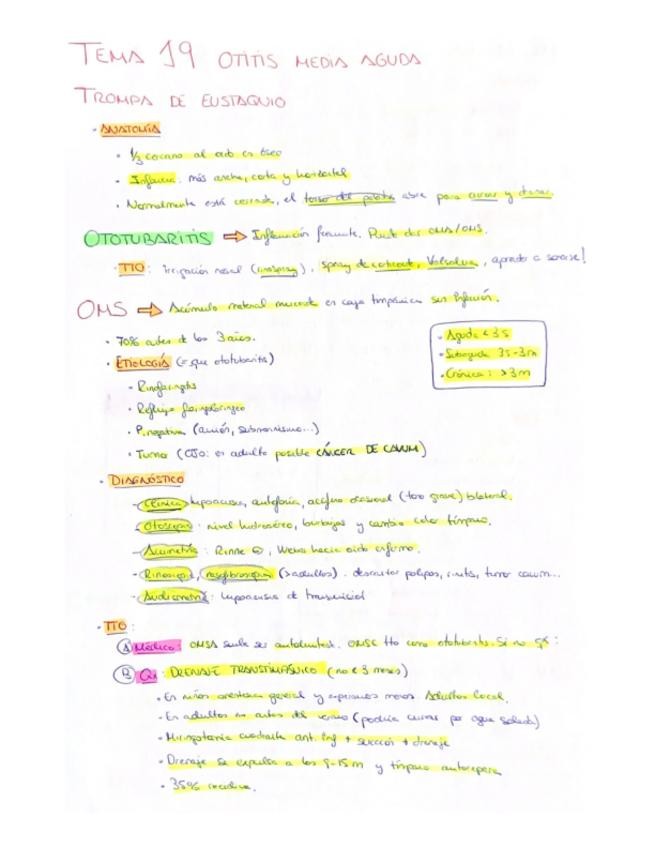 TEMA 19 OTITIS MEDIA AGUDA
TROMPA DE EUSTAQUIO
· ANATOMÍA
· 1/3 cercano al oído es óseo
· Infancia: más ancha, corta y horizontal
· Normalmente está cerrada, el tensor del paladar abre para airear y drenar.
OTOTUBARITIS ⇨ Inflamación frecuente. Puede dar OMA/OMS.
· TTO: Irrigación nasal (rinospray), spray de corticoide, Valsalva, aprender a sonarse!
OMS ⇨ Acúmulo material mucoide en caja timpánica sin infección.
· 70% antes de los 3 años.
· Aguda < 3s
· Subaguda 3s-3m
· Crónica: >3m
· ETIOLOGÍA (= que ototubaritis)
· Rinofaringitis
· Reflujo faringolaríngeo
· P. negativa (avión, submarinismo...)
· Tumor (OJO: en adulto posible CÁNCER DE CAVUM)
· DIAGNÓSTICO
- Clínica: hipoacusia, autofonía, acúfeno ocasional (tono grave) bilateral.
- Otoscopia: nivel hidroaéreo, burbujas y cambio color tímpano.
- Acumetría: Rinne ⊖, Weber hacia oído enfermo.
- Rinoscopia, (>adultos). descartar pólipos, rinitis, tumor cavum...
- Audiometría: hipoacusia de transmisión
· TTO:
A Médico: OMSA suele ser autolimitada. OMSC tto como ototubaritis. Si no qx:
B Qx: DRENAJE TRANSTIMPÁNICO (no < 3 meses)
· En niños anestesia general y esperamos meses. Adultos local.
· En adultos no antes del verano (podría entrar por agua salada)
· Miringotomía cuadrante ant. inf + succión + drenaje
· Drenaje se expulsa a los 9-15m y tímpano autorepara
· 35% recidiva.